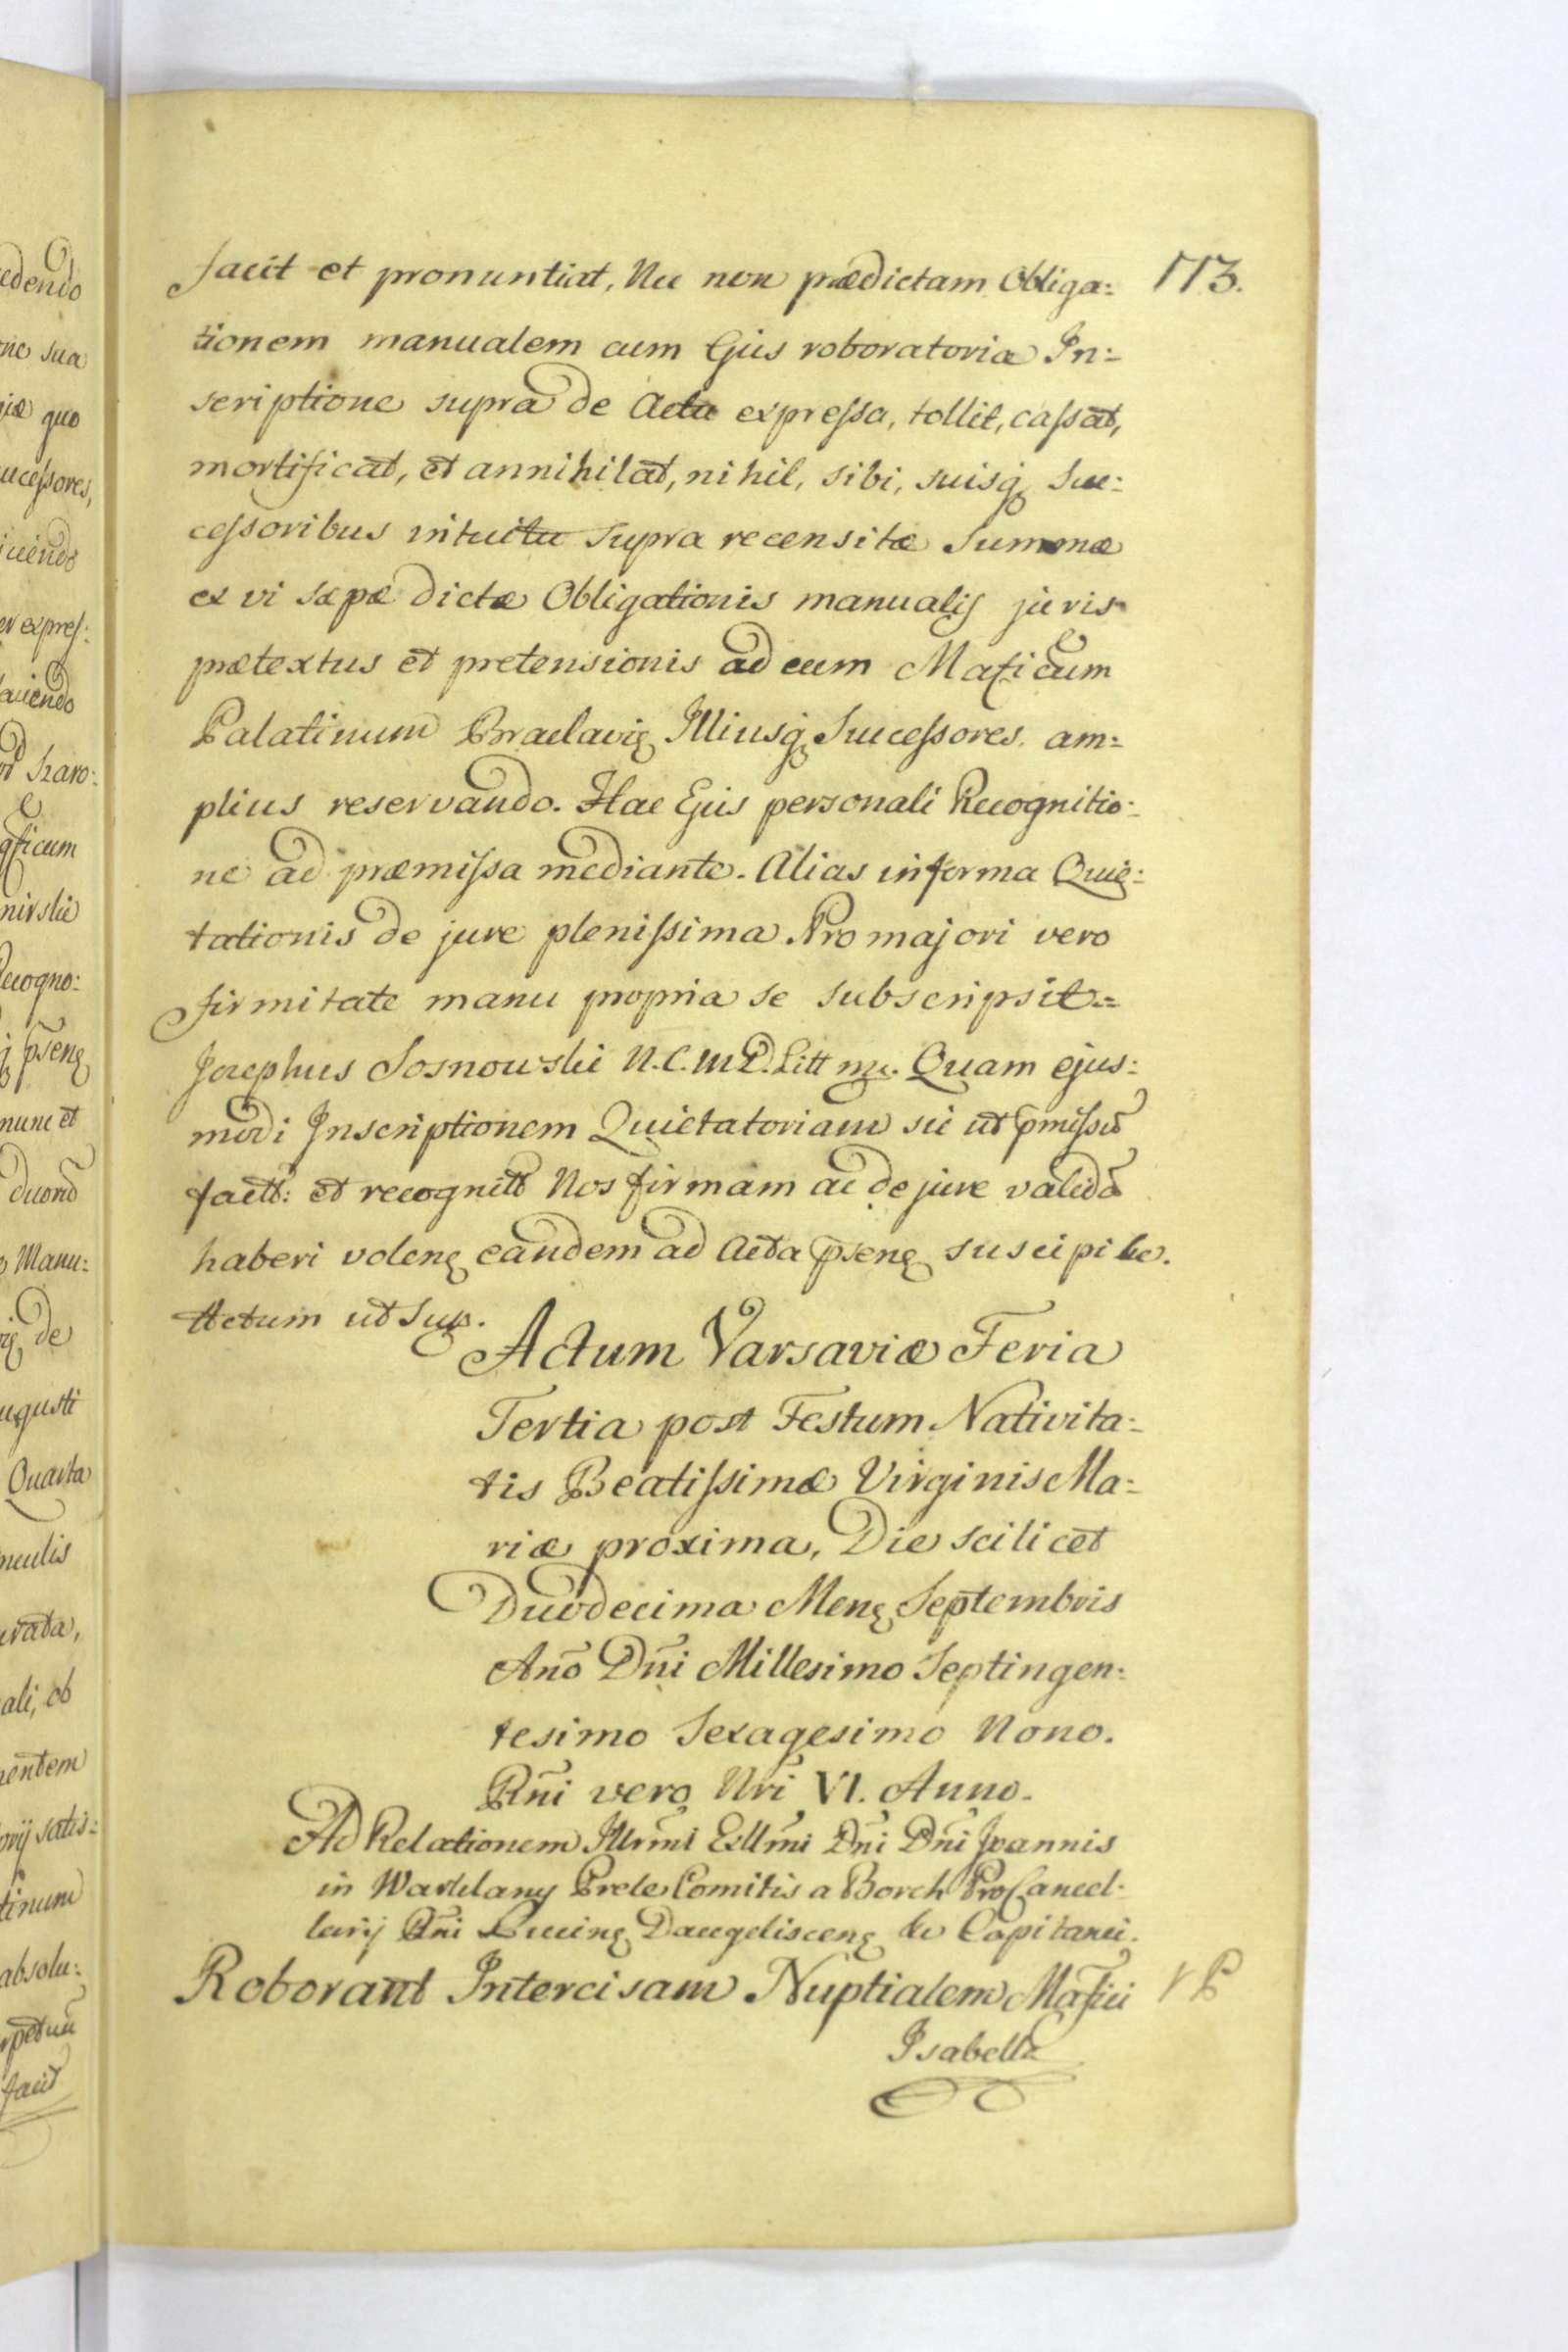 facit et pronuntiat, Nec non prædictam Obliga: 173.
tionem manualem cum Ejus roboratoria In:
scriptione supra de Actu expressa, tollit, cassat,
mortificat, et annihilat, nihil, sibi, suisq Suc:
cessoribus intuitu supra recensitæ Summæ
ex vi sæpæ dictæ Obligationis manualis juris
prætextus et pretensionis ad eum Mafficum
Palatinum Braclavię Illiusq Successores am:
plius reservando. Hac Ejus personali Recognitio:
ne ad præmissa mediante. Alias in forma Quie:
tationis de jure plenissima Pro majori vero
firmitate manu propria se subscripsit=
Josephus Sosnowski N.C.M.D. Litt mp. Quam ejus:
modi Inscriptionem Quietatoriam sic ut pmissũ
factt: et recognitt Nos firmam ac de jure validã
haberi volenę eandem ad Acta psenę suscipi
Actum ut Sup.
Actum Varsaviæ Feria
Tertia post Festum Nativita:
tis Beatissimæ Virginis Ma:
riæ proxima, Die scilicet
Duodecima Menę Septembris
Año Dñi Millesimo Septingen:
tesimo Sexagesimo Nono.
Rñi vero Nri VI. Anno.
Ad Relationem Illrmi Exllmi Dñi Dñi Joannis
in Warklany Prele Comitis a Borch ProCancel:
larij Rñi Lucinę Daugeliscenę &c Capitanei.
Roborant Intercisam Nuptialem Maffici
Isabella